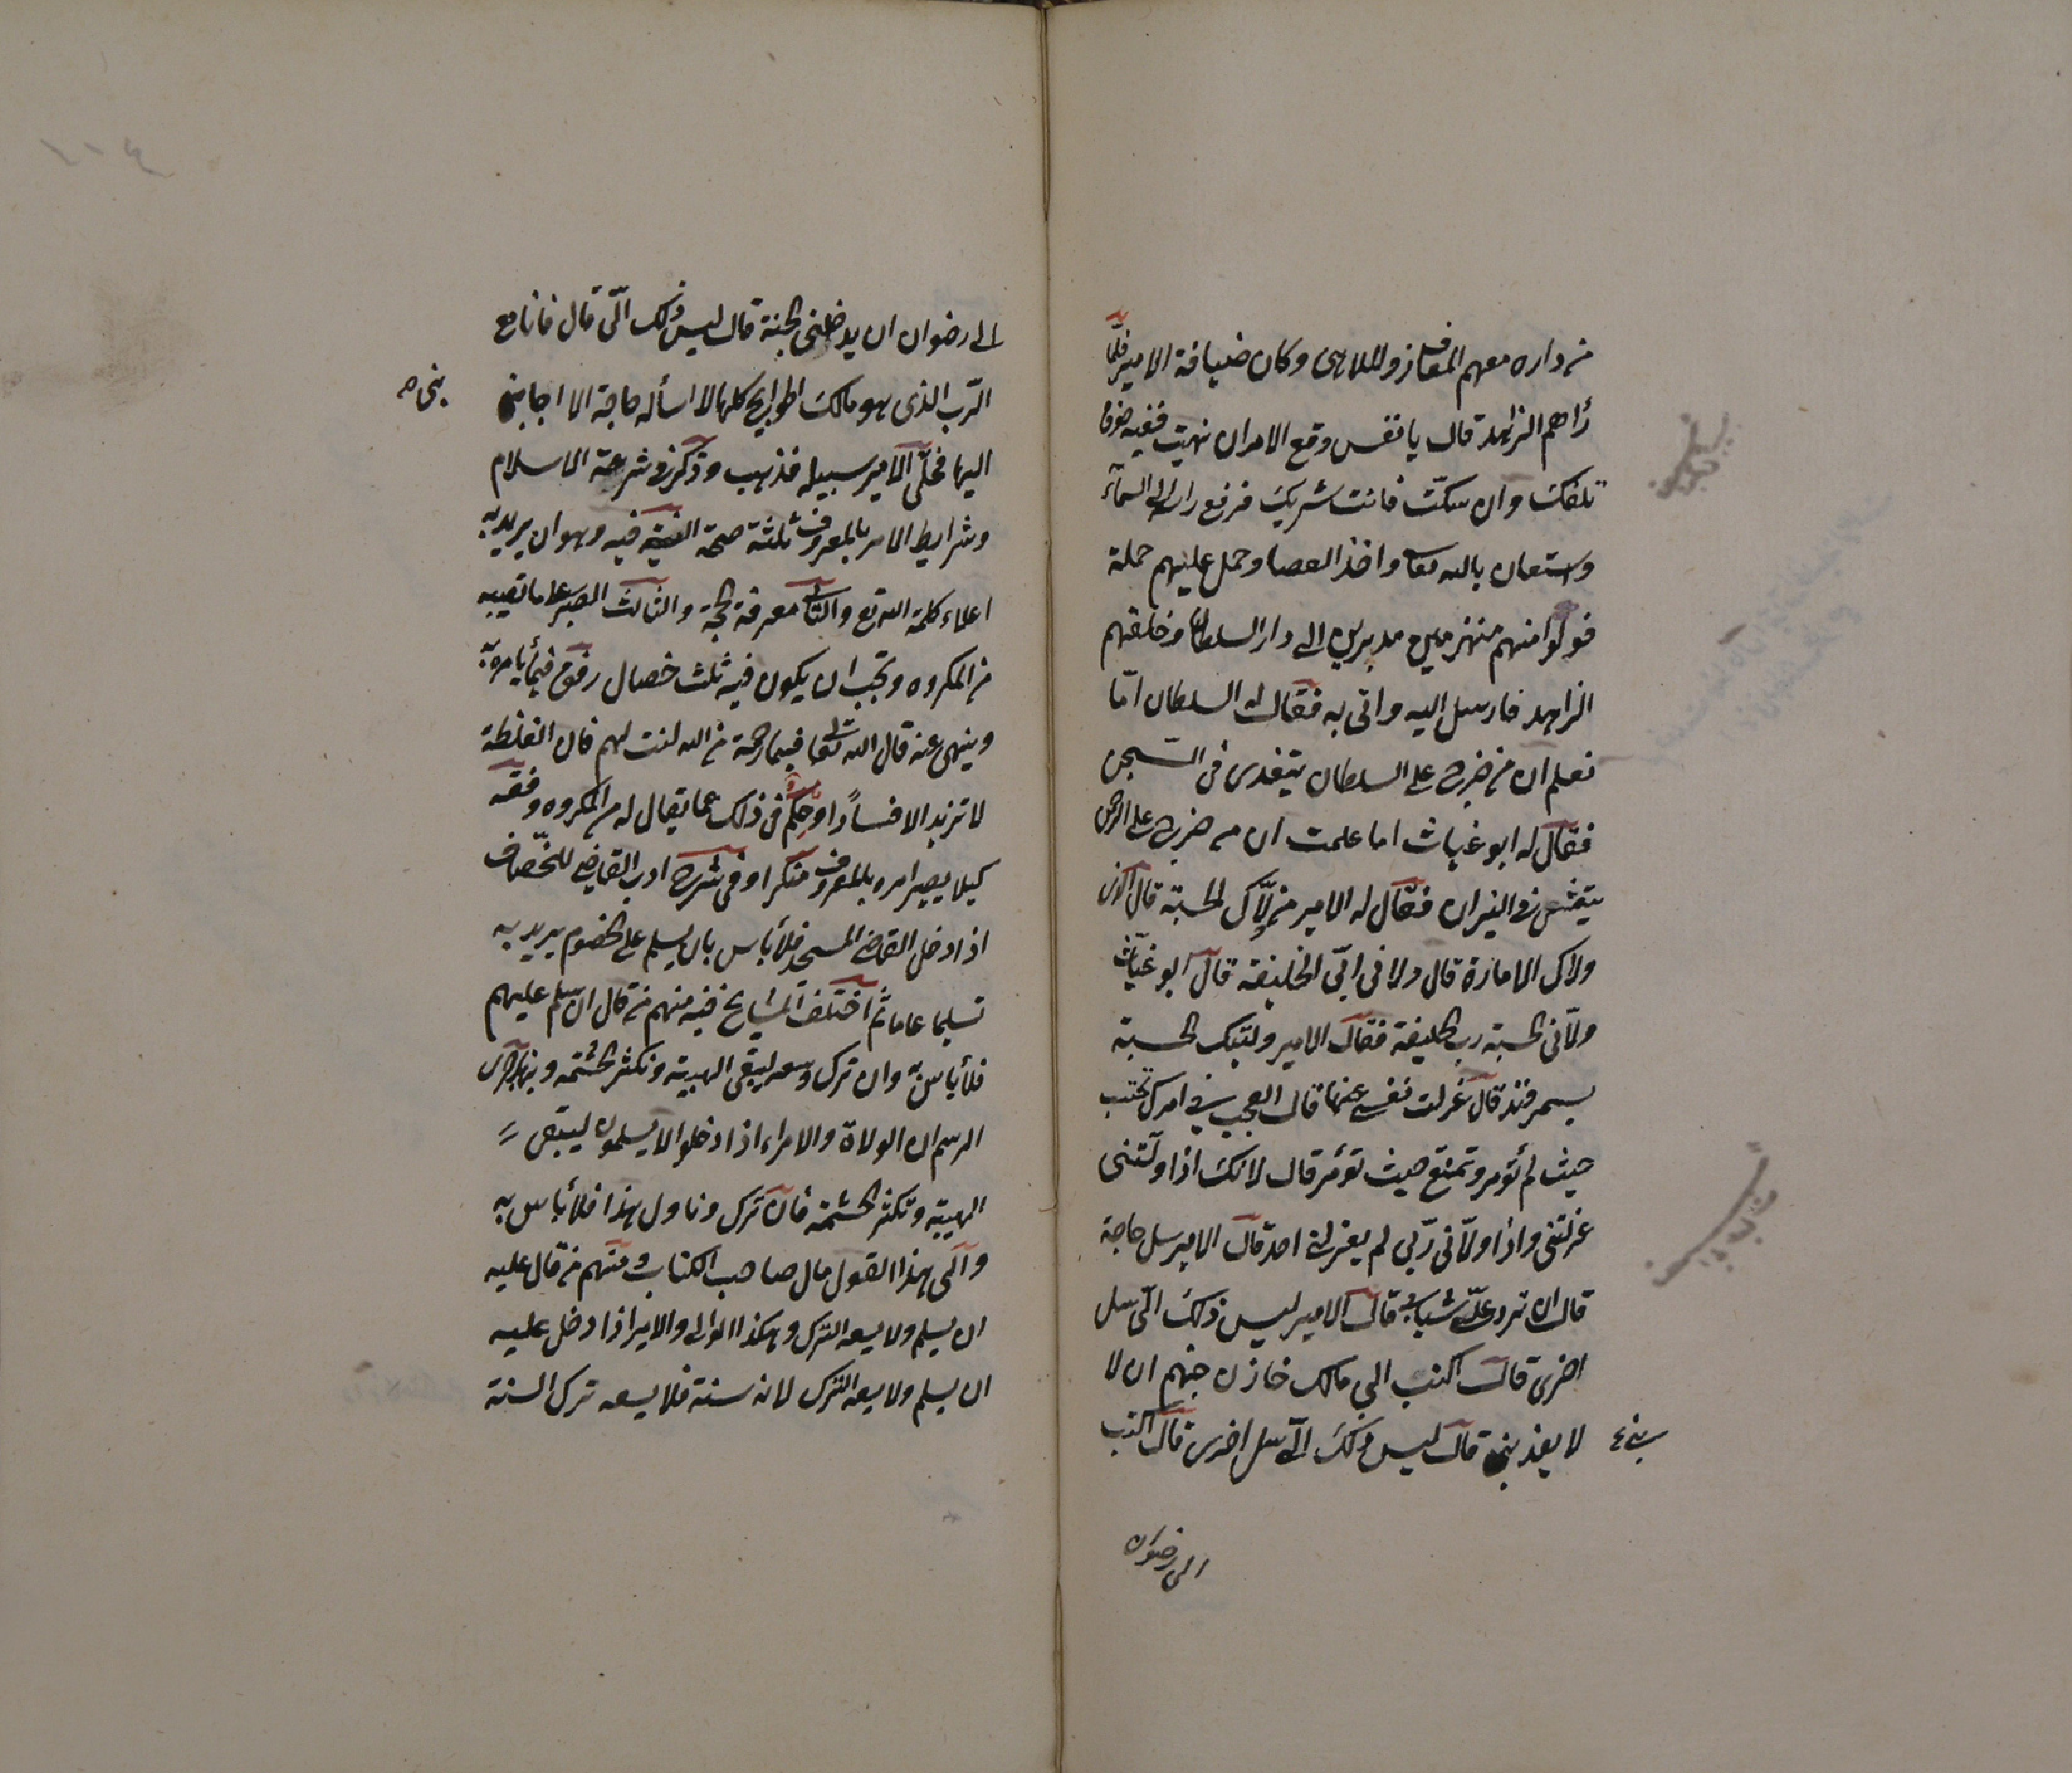 من داره معهم المعازف والملاهى وكان ضيافة الامير فلما
رأهم الزاهد قال يا نفس وقع الامر ان نهيت ففيه خوف
تلفك وان سكت فانت شريك فرفع راسه الى السماء
واستعان بالله تعا واخذ العصا وحمل عليهم حملة
فولوا منهم منهزمين مدبرين الى دار السلطان وخلفهم
الزاهد فارسل اليه واتى به فقال له السلطان اما
تعلم ان من خرج على السلطان يتغدى فى السجن
فقال له ابو غياث اما علمت ان من خرج على الرحمن
يتعشى فى النيران فقال له الامير من ولاك الحسبة قال الذى
ولاك الامارة قال ولانى الخليفة قال ابو غياث
ولانى الحسبة رب الخليفة فقال الامير وليتك الحسبة
بسمرقند قال عزلت نفسى عنها قال العجب فى امرك تحتسب
حيث لم تؤمر وتمتنع حيث تؤمر قال لانك اذا وليتنى
عزلتنى واذا ولانى ربى لم يعزلنى احد قال الامير سل حاجة
قال ان ترد على شبابى قال الامير ليس ذلك الى سل
اخرى قال اكتب الى مالك خازن جهنم ان لا
لا يعذبنى قال ليس ذلك الى سل اخرى قال اكتب
الى رضوان
الى رضوان ان يدخلنى الجنة قال ليس ذلك الى قال فانا مع
الرب الذى هو مالك الحوايج كلها لا اسأله حاجة الا اجابنى
اليها فخلى الامير سبيله فذهب وذكر فى شرعة الاسلام
وشرايط الامر بالمعروف ثلثة صحة النية فيه وهو ان يريد به
اعلاء كلمة الله تع والثانى معرفة الحجة والثالث الصبر على ما يصيبه
من المكروه ويجب ان يكون فيه ثلث خصال رفق فيما يأمر به
وينهى عنه قال الله تعا فبما رحمة من الله لنت لهم فان الغلظة
لا تزيد الا فسادا وحلم فى ذلك عما يقال له من المكروه وفقه
كيلا يصير امره بالمعروف منكرا وفى شرح ادب القاضى للخصاف
اذا دخل القاضى المسجد فلا بأس بان يسلم على الخصوم يريد به
تسليما عاما ثم اختلف المشايخ فيه منهم من قال ان سلم عليهم
فلا بأس به وان ترك وسعه ليبقى الهيبة وتكثر الحشمة وبهذا جرى
الرسم ان الولاة والامراء اذا دخلوا لا يسلمون ليبقى
الهيبة وتكثر الحشمة فان ترك وتاول هذا فلا بأس به
والى هذا القول مال صاحب الكتاب ومنهم من قال عليه
ان يسلم ولا يسعه الترك وهكذا الوالى والامير اذا دخل عليه
ان يسلم ولا يسعه الترك لانه سنة فلا يسعه ترك السنة